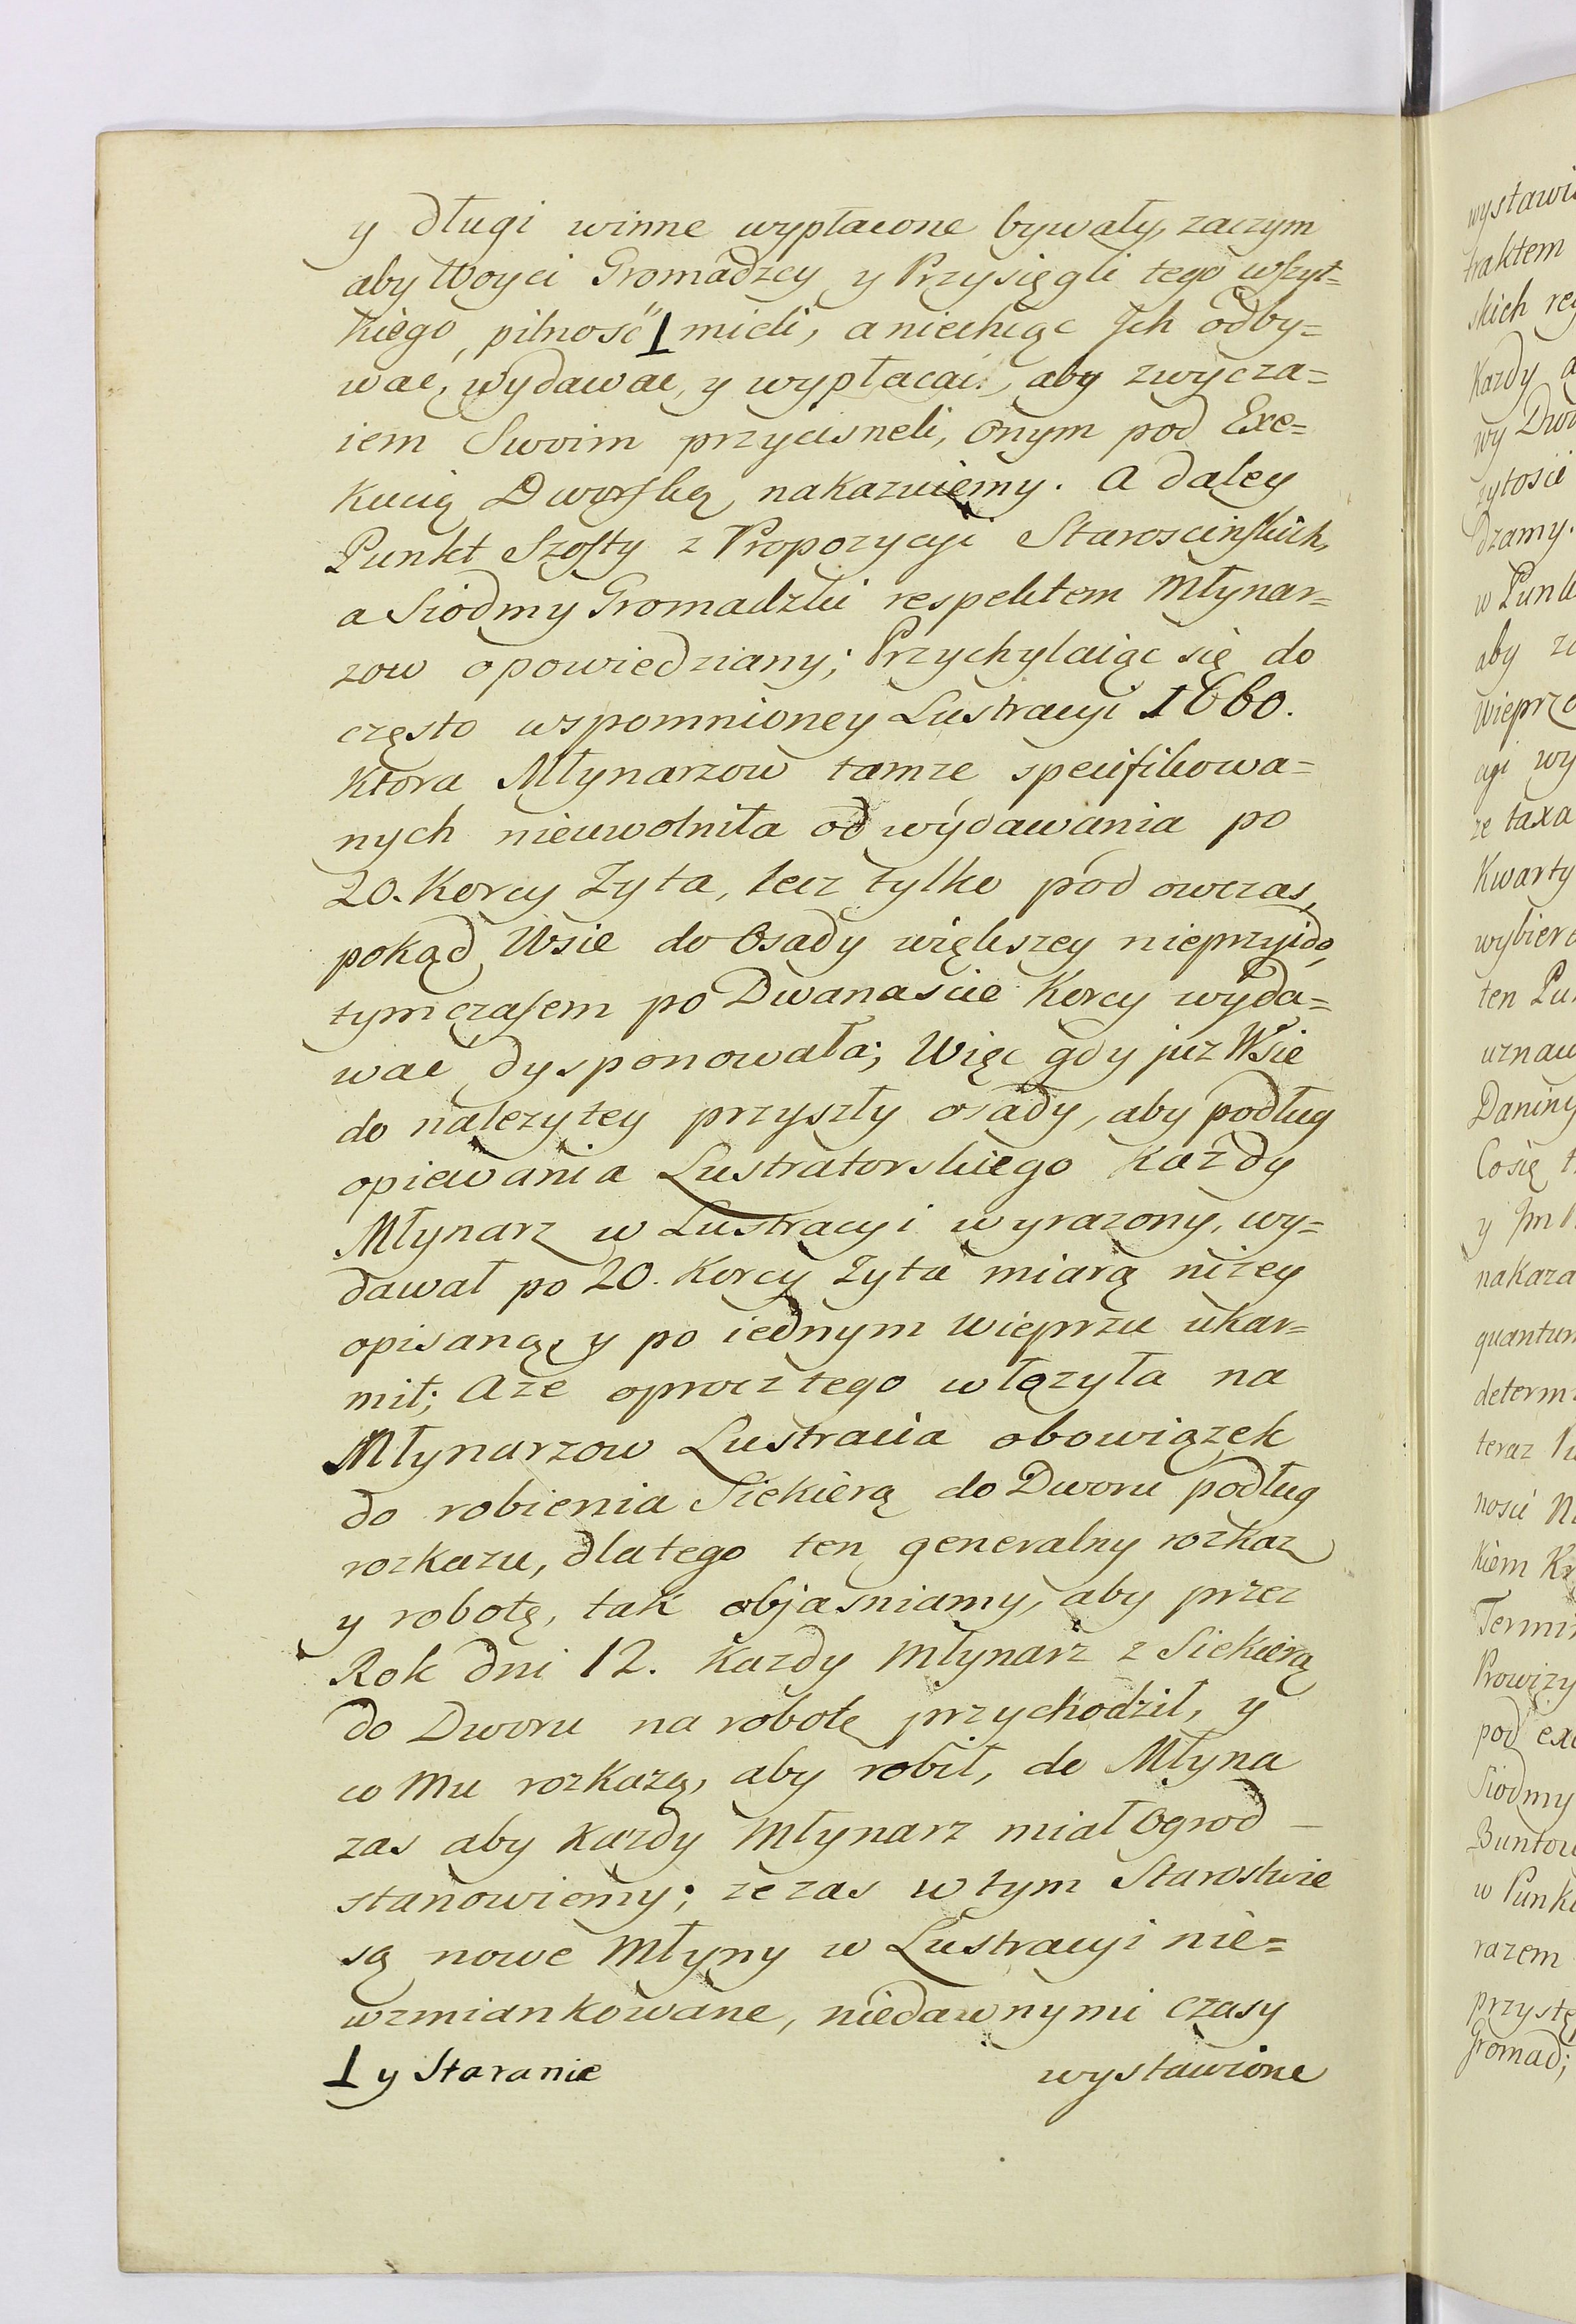 y długi winne wypłacone bywały, zaczym
aby Woyci Gromadzcy y Przysięgli tego wszyt=
kiego, pilność ⊥ mieli, a niechcąc Jch odby=
wać, wydawać, y wypłacać, aby zwycza=
iem Swoim przycisneli, Onym pod Exe=
kucią Dworską, nakazuiemy. A daley
Punkt Szosty z Propozycyi Starościńskich,
a Siodmy Gromadzki respektem Młynar=
zow opowiedziany; Przychylaiąc się do
często wspomnioney Lustracyi 1660.
Ktora Młynarzow tamze specifikowa=
nych nieuwolniła od wydawania po
20. Korcy Zyta, lecz tylko pod owczas,
pokąd Wsie do Osady większey nieprzyidą,
tym czasem po Dwanascie Korcy wyda=
wać dysponowała; Więc gdy juz Wsie
do nalezytey przyszły osady, aby podług
opiewania Lustratorskiego Kazdy
Młynarz w Lustracyi wyrazony, wy=
dawał po 20. Korcy Zyta miarą nizey
opisaną, y po iednym Wieprzu ukar=
mił; Aze oprocz tego włozyła na
Młynarzow Lustracia obowiązek
do robienia Siekierą do Dworu podług
rozkazu, dlatego ten generalny rozkaz
y robotę, tak objasniamy, aby przez
Rok dni 12. Kazdy Młynarz z Siekierą
do Dworu na robotę przychodził, y
co Mu rozkazą, aby robił, do Młyna
zas aby Kazdy Młynarz miał Ogrod –
stanowiemy; ze zas w tym Starostwie
są nowe Młyny w Lustracyi nie=
wzmiankowane, niedawnymi czasy
⊥ y Staranie
wystawione
wystawi
traktem
skich
Kazdy
wy
dzamy.
aby
Wieprz
ze taxa
Kwarty
ten
Daniny
Co się
nakaza
quantum
determi
teraz
Termi
pod
Siodmy
w Punk
razem
przystę
Gromad;